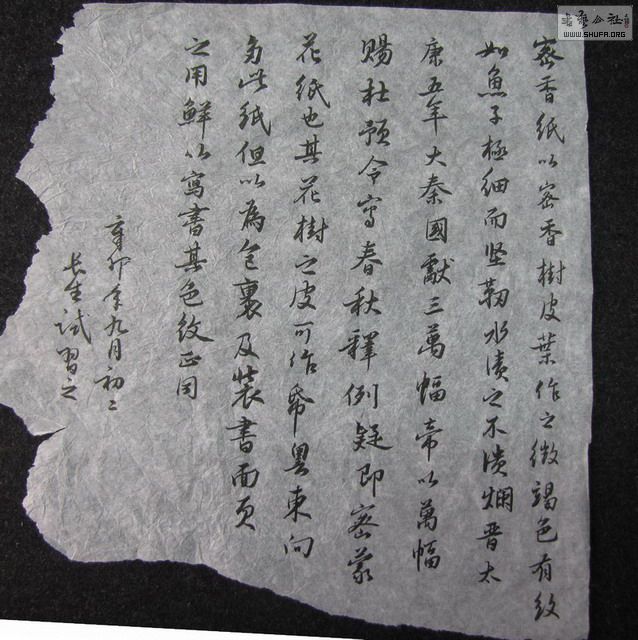 密香紙以密香樹皮葉作之微竭色有紋
如魚子極细而坚韌水漬之不潰爛晋太
康五年大秦國獻三萬幅帝以萬幅
赐杜预令寫春秋釋例疑即密蒙
花纸也其花樹之皮可作帋粤東向
多此纸但以為包裹及裝書面页
之用鮮以寫書其色紋正同
辛卯年九月初二
长生試習之
書法公社
WWW.SHUFA.ORG